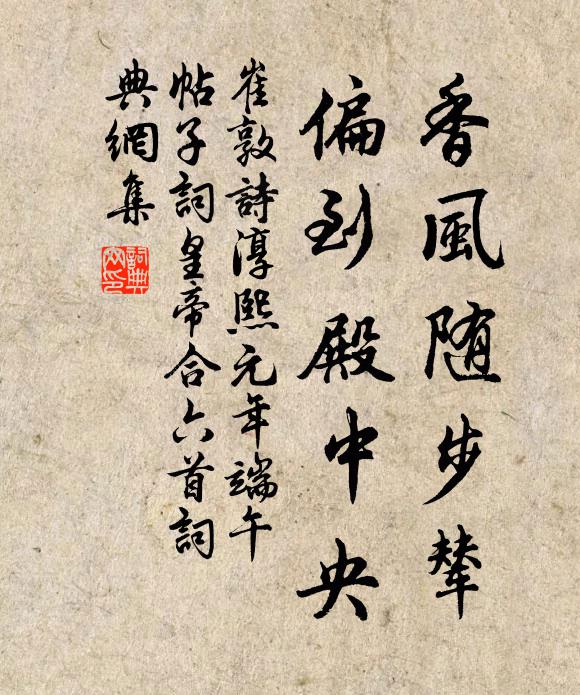 香風随步輦
偏到殿中央
崔敦詩淳熙元年端午
帖子詞皇帝合六首詞
典網集
詞典網印